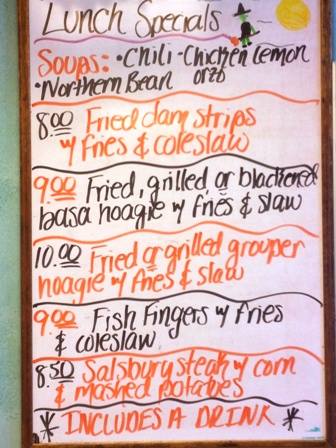 Lunch Specials
Soups: •Chili •Chicken lemon
•Northern Bean orzo
8.00 Fried clam strips
w/ fries & coleslaw
9.00 Fried, grilled or blackened
basa hoagie w/ fries & slaw
10.00 Fried or grilled grouper
hoagie w/ fries & slaw
9.00 Fish Fingers w/ fries
& coleslaw
8.50 Salsbury steak w/ corn
& mashed potatoes
* INCLUDES A DRINK *